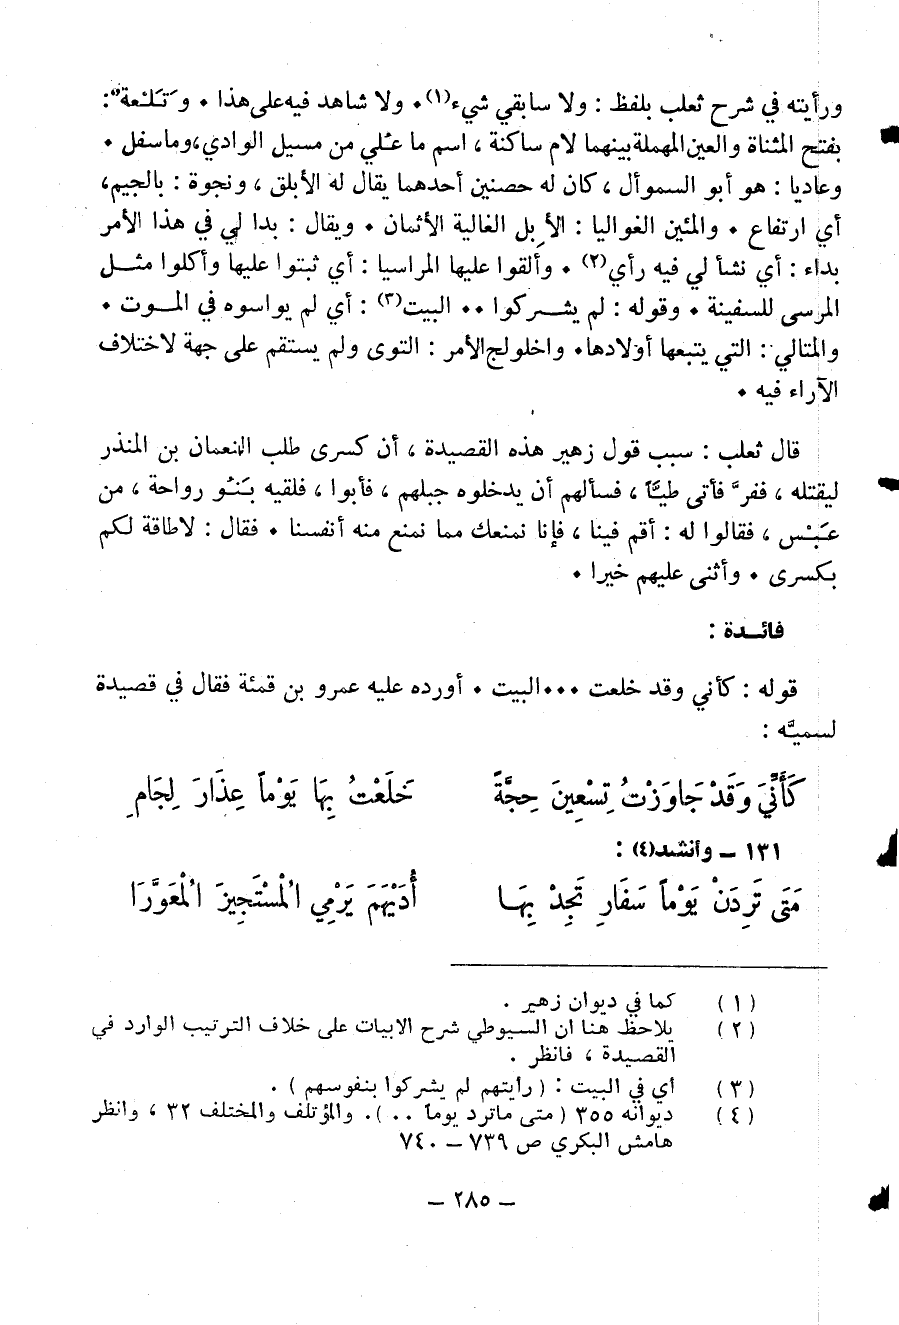 ورأيته في شرح ثعلب بلفظ : ولا سابقي شيء(١)٠ ولا شاهد فيه على هذا ٠ و َتَلْعة ":
بفتح المثناة والعين المهملة بينهما لام ساكنة ، اسم ما عُلي من مسيل الوادي،وما سفل ٠
وعاديا : هو أبو السموأل ، كان له حصنين أحدهما يقال له الأبلق ، ونجوة : بالجيم،
أي ارتفاع ٠ والمئين الغواليا : الأبل الغالية الأثمان ٠ ويقال : بدا لي في هذا الأمر
بداء : أي نشأ لي فيه رأي(٢) ٠ وألقوا عليها المراسيا : أي ثبتوا عليها وأكلوا مثــل
المرسى للسفينة ٠ وقوله : لم يشــركوا ٠٠ البيت(٣) : أي لم يواسوه في المــوت ٠
والمتالي : التي يتبعها أولادها٠ واخلولج الأمر : التوى ولم يستقم على جهة لاختلاف
الآراء فيه ٠
قال ثعلب : سبب قول زهير هذه القصيدة ، أن كسرى طلب النعمان بن المنذر
ليقتله ، ففرَّ فأتى طيّئاً ، فسألهم أن يدخلوه جبلهم ، فأبوا ، فلقيه بَنُو رواحة ، من
عَبْس ، فقالوا له : أقم فينا ، فإنا نمنعك مما نمنع منه أنفسنا ٠ فقال : لا طاقة لكم
بكسرى ٠ وأثنى عليهم خيرا ٠
فائــدة :
قوله : كأني وقد خلعت ٠٠٠البيت ٠ أورده عليه عمرو بن قمئة فقال في قصيدة
لسميّه :
كَأَنِّيَ وَقَدْ جَاوَزْتُ تِسْعِينَ حِجَّةً خَلَعْتُ بِهَا يَوْماً عِذَارَ لِجَامِ
١٣١ – وأنشد(٤) :
مَتَى تَرِدَنْ يَوْماً سَفَارِ تَجِدْ بِهَــا أُدَيْهَمَ يَرْمِي الْمُسْتَجِيزَ الْمُعَوَّرَا
(١) كما في ديوان زهير .
(٢) يلاحظ هنا ان السيوطي شرح الابيات على خلاف الترتيب الوارد في
القصيدة ، فانظر .
(٣) أي في البيت : ( رايتهم لم يشركوا بنفوسهم ) .
(٤) ديوانه ٣٥٥ ( متى ماترد يوماً .. ). والمؤتلف والمختلف ٣٢ ، وانظر
هامش البكري ص ٧٣٩ – ٧٤٠
– ٢٨٥ –